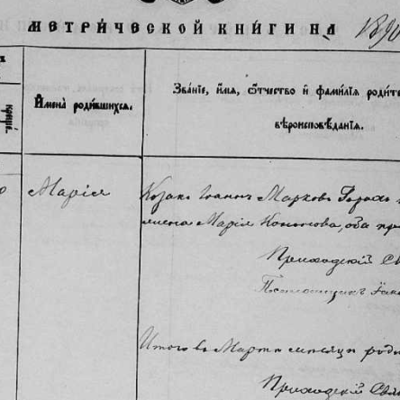 МЕТРИЧЕСКОЙ КНИГИ НА 1890
крещ.
Имена родившихся.
Званіе, имя, отчество и фамилія родите
вѣроисповѣданія.
Марія
Козакъ Іоаннъ Марковъ
жена Марія Кононова, оба пр
Приходскій Свя
Итого въ Мартѣ мѣсяцѣ роди
Приходскій Свя